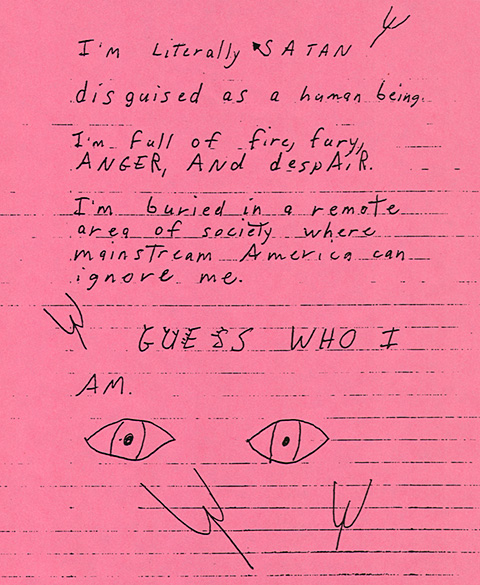 I'm Literally SATAN
disguised as a human being.
I'm full of fire, fury,
ANGER, ANd despAIR.
I'm buried in a remote
area of society where
mainstream America can
ignore me.
GUESS WHO I
AM.